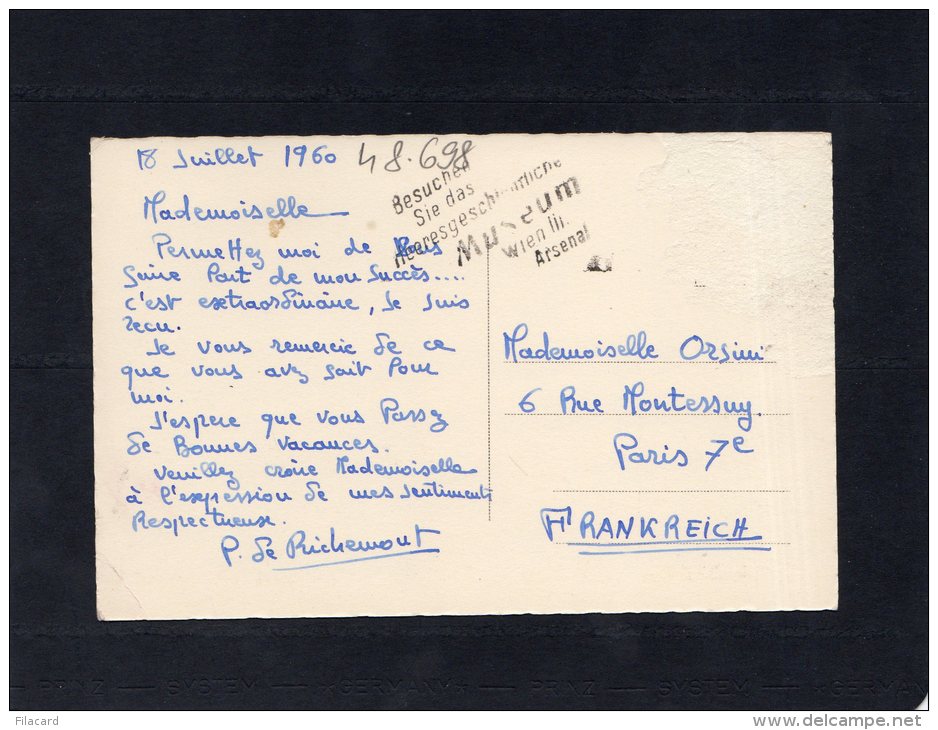 18 Juillet 1960
48.698
Besuchen
Sie das
Heeresgeschichtliche
Museum
Wien III.
Arsenal
Mademoiselle
Permettez moi de vous
faire Part de mon Succès....
c'est extraordinaire, Je suis
recu.
Je vous remercie de ce
que vous avez fait Pour
moi.
J'espere que vous Passez
de Bonnes Vacances.
Veuillez croire Mademoiselle
à l'expression de mes sentiments
Respectueux.
P. de Richemont
Mademoiselle Orsini
6 Rue Montessuy.
Paris 7e
FRANKREICH
PRINZ — SYSTEM — *GERMANY* — PRINZ — SYSTEM — *GERMANY
Filacard
delcampe.net